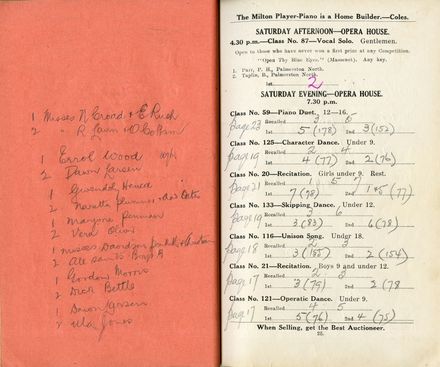 1 Misses N Croad + E Rush
2 " R Lawn + D
1 Errol Wood
2 Dawn Larsen
1 Gwenda
2
1 Marjorie
2 Vera
1 Misses Davidson
2 All Saints Boys A
1 Gordon Morris
2 Dick Bettle
1
2 Jones
The Milton Player-Piano is a Home Builder.—Coles.
SATURDAY AFTERNOON—OPERA HOUSE.
4.30 p.m.—Class No. 87—Vocal Solo. Gentlemen.
Open to those who have never won a first prize at any Competition.
"Open Thy Blue Eyes." (Massenet). Any key.
1. Parr, P. H., Palmerston North.
2. Taplin, B., Palmerston North.
1st 2
SATURDAY EVENING—OPERA HOUSE.
7.30 p.m.
Class No. 59—Piano Duet. 12—16.
Page 23 Recalled 3 5
1st 5 (178) 2nd 3 (152)
Class No. 125—Character Dance. Under 9.
Page 19 Recalled 2 4
1st 4 (77) 2nd 2 (76)
Class No. 20—Recitation. Girls under 9. Rest.
Page 21 Recalled 1 5 7
1st 7 (78) 2nd 1+5 (77)
Class No. 133—Skipping Dance. Under 12.
Page 19 Recalled 3 6
1st 3 (83) 2nd 6 (78)
Class No. 116—Unison Song. Under 18.
Page 18 Recalled 2 3
1st 3 (185) 2nd 2 (154)
Class No. 21—Recitation. Boys 9 and under 12.
Page 17 Recalled 2 3
1st 3 (79) 2nd 2 (78
Class No. 121—Operatic Dance. Under 9.
Page 17 Recalled 4 5
1st 5 (76) 2nd 4 (75)
When Selling, get the Best Auctioneer.